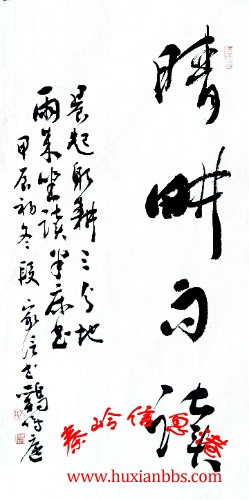 晴耕雨读
晨起躬耕三分地
雨来坐读半床书
甲辰初冬段
家信书鹤竹庭
秦岭信德斋
www.huxianbbs.com